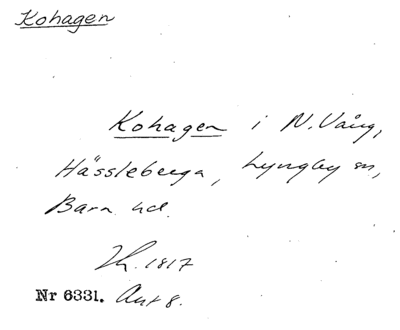 Kohagen
Kohagen i N. Vång,
Hässleberga, Lyngby sn,
Bara hd.
1817
Nr 6331. Akt 8.